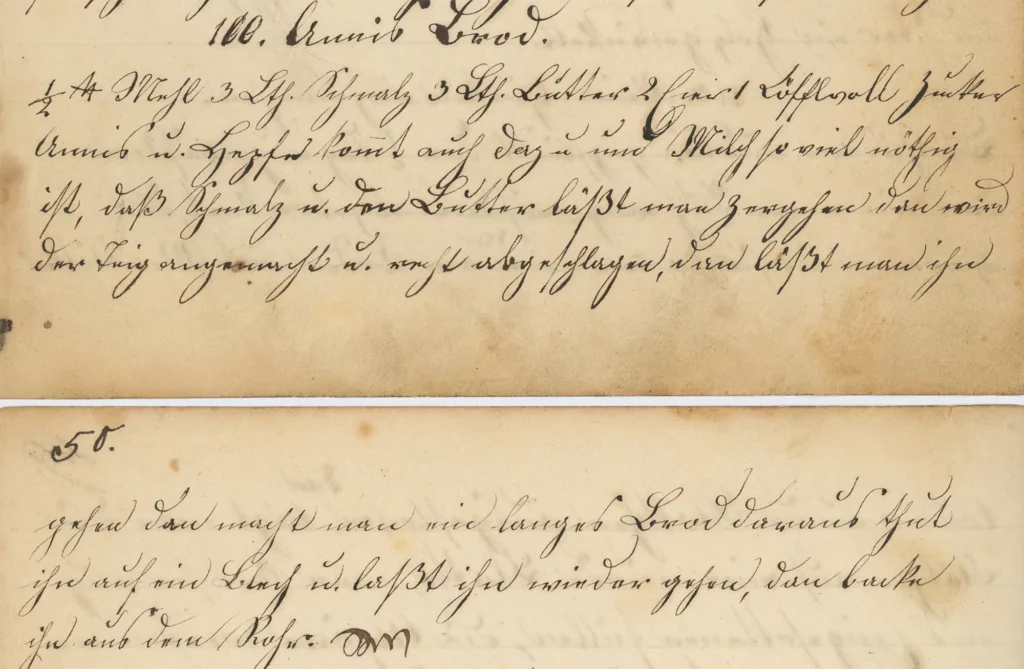 100. Annis Brod.
½ ℔ Mehl 3 Lth. Schmalz 3 Lth. Butter 2 Eier 1 Löfflvoll Zucker
Annis u. Hepfe kom̅t auch dazu und Milch so viel nöthig
ist, daß Schmalz u. den Butter läßt man zergehen dan wird
der Teig angemacht u. recht abgeschlagen, dan läßt man ihn
50.
gehen dan macht man ein langes Brod daraus thut
ihn auf ein Blech u. laßt ihn wieder gehen, dan backe
ihn aus dem Rohr.